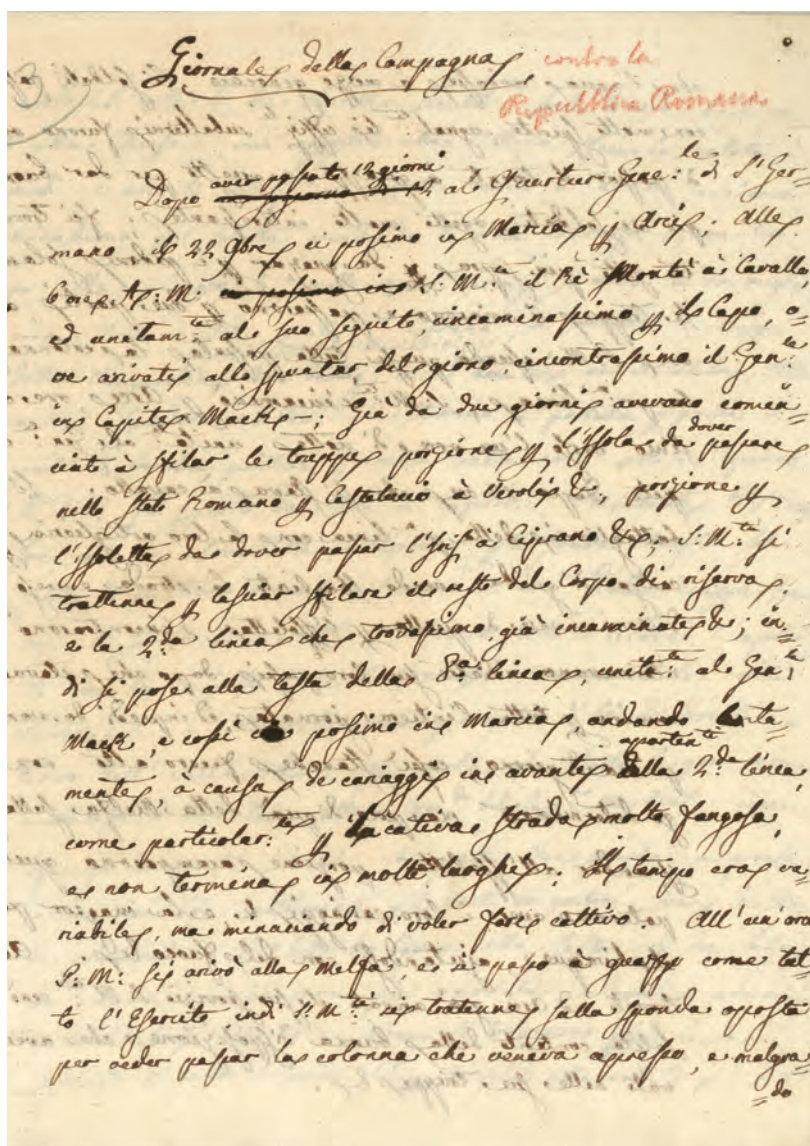 Giornale della Campagna, contro la
Repubblica Romana
aver passato 12 giorni
Dopo al Quartier Gene:le di S. Ger-
mano il 22 9bre ci posimo in Marcia p Arci; alle
6 ore A: M. S. M.tà il Rè Montò à Cavallo,
ed unitam:te al suo seguito, incaminassimo p il Capo, o-
ve arivati allo spuntar del giorno, incontrassimo il Gen:le
in Capite Mack-; Già dà due giorni avevano comen-
ciato à sfilar le truppe porzione p l'Issola da dover passare
nello Stato Romano p Castelucio à Veroli &, porzione p
l'Issoletta da dover passar l' à Ciprano &; S: M.tà si
trattenne p lasciar sfilare il resto del Corpo di riserva,
e la 2da linea che trovassimo già incaminate &; in-
di si pose alla testa della 3a linea, unita:te al Gen:le
Mack, e cossì posimo in Marcia, andando lenta-
mente, à causa de cariaggi in avante apartenti della 2da linea,
come particolar:te p la cativa strada molto fangosa,
e non termina in molti luoghi; Il tempo era va-
riabile, ma minaciando di voler farsi cattivo. All'un'ora
P: M: si arivò alla Melfa, e si passò à guazzo come tut-
to l'Esercito, indi S: M.tà si tratenne sulla sponda oposta
per veder passar la colonna che veniva apresso, e malgra-
do